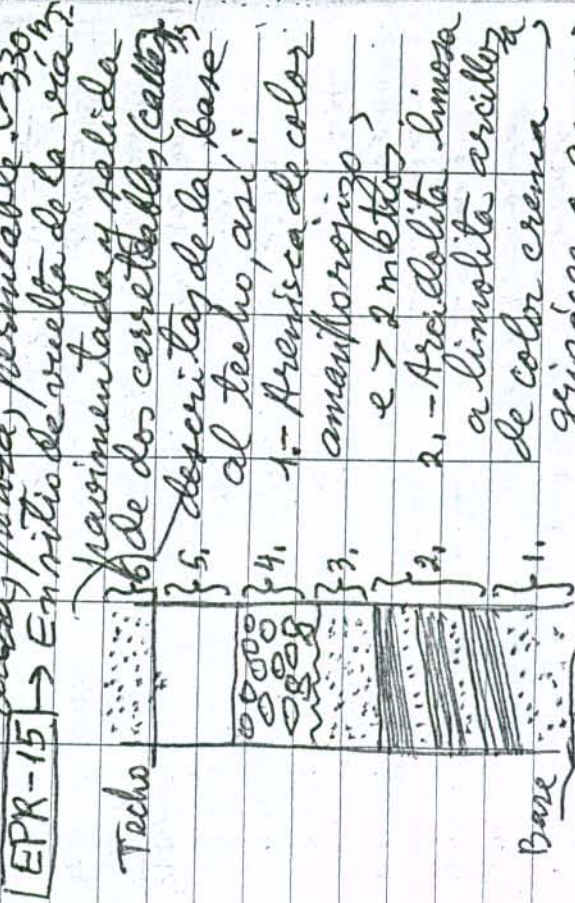 porosa, permeable. <330
EPR-15 → En sitio de vuelta de la vía
pavimentada y salida
de dos carreteables (calles),
descritas de la base
al techo, así:
1.- Arenisca de color
amarillo rojizo,
e > 2 metros,
2.- Arcillolita limosa
a limolita arcillosa
de color crema
Techo
6
5.
4.
3.
2.
1.
Base